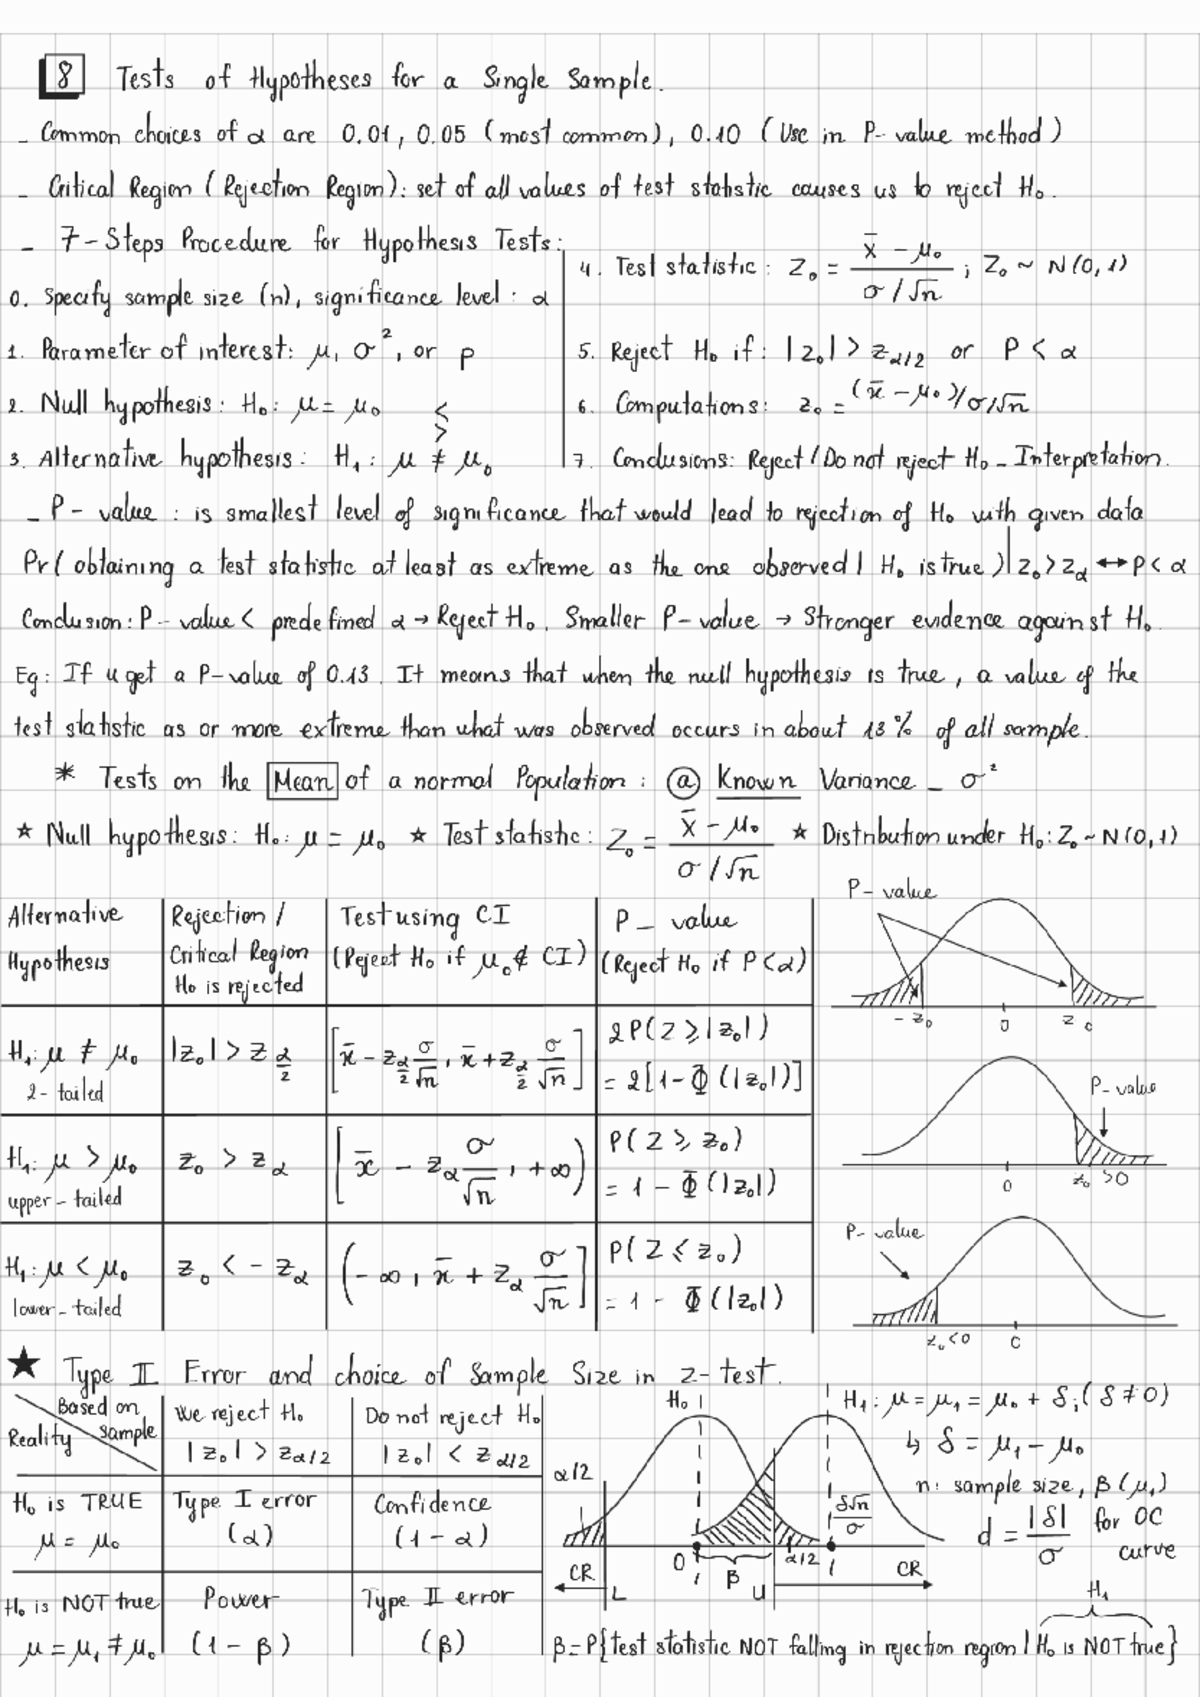 8 Tests of Hypotheses for a Single Sample.
- Common choices of α are 0.01, 0.05 (most common), 0.10 (Use in P-value method)
- Critical Region (Rejection Region): set of all values of test statistic causes us to reject H₀.
- 7-Steps Procedure for Hypothesis Tests:
0. Specify sample size (n), significance level: α
1. Parameter of interest: μ, σ², or p
2. Null hypothesis: H₀: μ = μ₀
<
>
3. Alternative hypothesis: H₁: μ ≠ μ₀
4. Test statistic: Z₀ = (x̄ - μ₀) / (σ/√n) ; Z₀ ~ N(0,1)
5. Reject H₀ if: |z₀| > z_α/2 or P < α
6. Computations: z₀ = (x̄ - μ₀)/σ/√n
7. Conclusions: Reject/Do not reject H₀ - Interpretation.
- P-value: is smallest level of significance that would lead to rejection of H₀ with given data
Pr(obtaining a test statistic at least as extreme as the one observed | H₀ is true) | z₀ > z_α ↔ P < α
Conclusion: P-value < predefined α → Reject H₀. Smaller P-value → Stronger evidence against H₀.
Eg: If u get a P-value of 0.13. It means that when the null hypothesis is true, a value of the
test statistic as or more extreme than what was observed occurs in about 13% of all sample.
* Tests on the Mean of a normal Population: ⓐ Known Variance - σ²
★ Null hypothesis: H₀: μ = μ₀ ★ Test statistic: Z₀ = (x̄ - μ₀) / (σ/√n) ★ Distribution under H₀: Z₀ ~ N(0,1)
Alternative Hypothesis
Rejection / Critical Region H₀ is rejected
Test using CI (Reject H₀ if μ₀ ∉ CI)
P-value (Reject H₀ if P<α)
H₁: μ ≠ μ₀ 2-tailed
|z₀| > z_α/2
[x̄ - z_α/2 σ/√n, x̄ + z_α/2 σ/√n]
2P(Z ≥ |z₀|)
= 2[1-Φ(|z₀|)]
H₁: μ > μ₀ upper-tailed
z₀ > z_α
[x̄ - z_α σ/√n, +∞)
P(Z ≥ z₀)
= 1 - Φ(|z₀|)
H₁: μ < μ₀ lower-tailed
z₀ < -z_α
(-∞, x̄ + z_α σ/√n]
P(Z ≤ z₀)
= 1 - Φ(|z₀|)
P-value
-z₀ 0 z₀
P-value
0 z₀>0
P-value
z₀<0 0
★ Type II Error and choice of Sample Size in z-test.
Based on sample
Reality
We reject H₀ |z₀| > z_α/2
Do not reject H₀ |z₀| < z_α/2
H₀ is TRUE μ = μ₀
Type I error (α)
Confidence (1-α)
H₀ is NOT true μ = μ₁ ≠ μ₀
Power (1-β)
Type II error (β)
H₀
α/2
δ√n/σ
0 β α/2
CR L U CR
H₁: μ = μ₁ = μ₀ + δ; (δ ≠ 0)
↳ δ = μ₁ - μ₀
n: sample size, β(μ₁)
d = |δ|/σ for OC curve
H₁
β = P{test statistic NOT falling in rejection region | H₀ is NOT true}